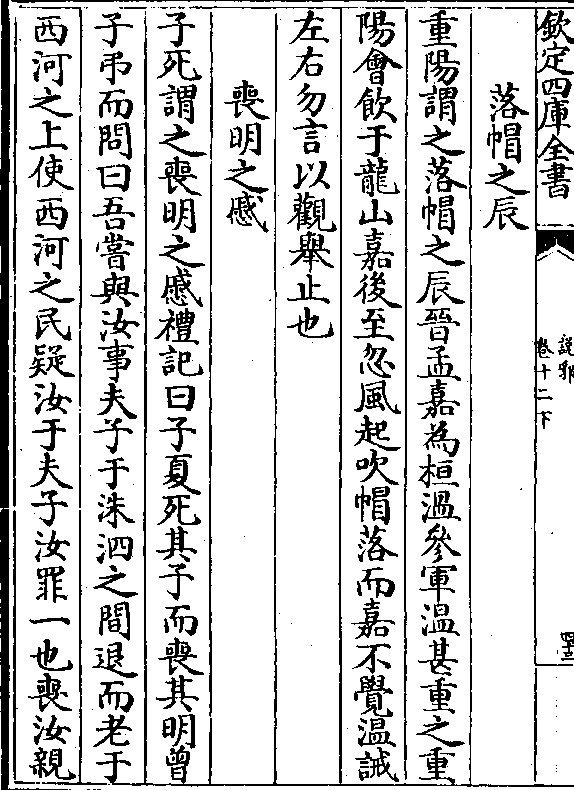 欽定四庫全書
說郛
卷十二下
落帽之辰
重陽謂之落帽之辰晉孟嘉為桓溫參軍溫甚重之重
陽會飲于龍山嘉後至忽風起吹帽落而嘉不覺溫誡
左右勿言以觀舉止也
喪明之慼
子死謂之喪明之慼禮記曰子夏死其子而喪其明曾
子弔而問曰吾嘗與汝事夫子于洙泗之間退而老于
西河之上使西河之民疑汝于夫子汝罪一也喪汝親